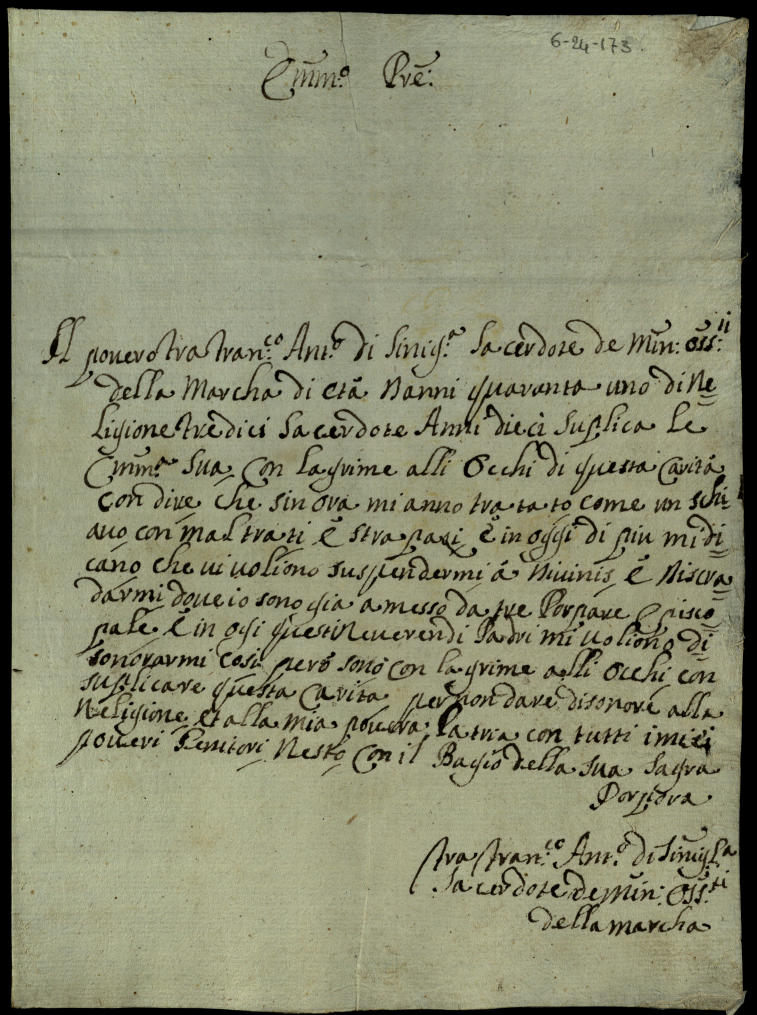 6-24-173.
Emin.º Prē:
Il povero fra Fran.co Ant.º di Sinig.a Sacerdote de Min: Oss:ti
della Marcha di età Nanni quaranta uno di Re=
ligione tredici Sacerdote Anni dieci Suplica le
Emin.e Sua con lagrime alli Occhi di questa carità
con dire che sin ora mi anno tratato come un schi=
avo con mal trati è strapasi è in oggi di piu midi=
cano che vi voliono suspendermi á Divinis è Discra
darmi dove io sono gia amesso da tre Porpare Episco=
pale è in ogi questi Reverendi Padri mi voliono di=
sonorarmi cosi però sono con lagrime alli Occhi con
suplicare questa carita per non dare disonore alla
Religione et alla mia povera Patria con tutti i miei
poveri Genitori Resto con il Bagio della sua Sagra
Porpora
fra Fran.co Ant.º di Sinig.a
Sacerdote de Min: Oss:ti
della marcha